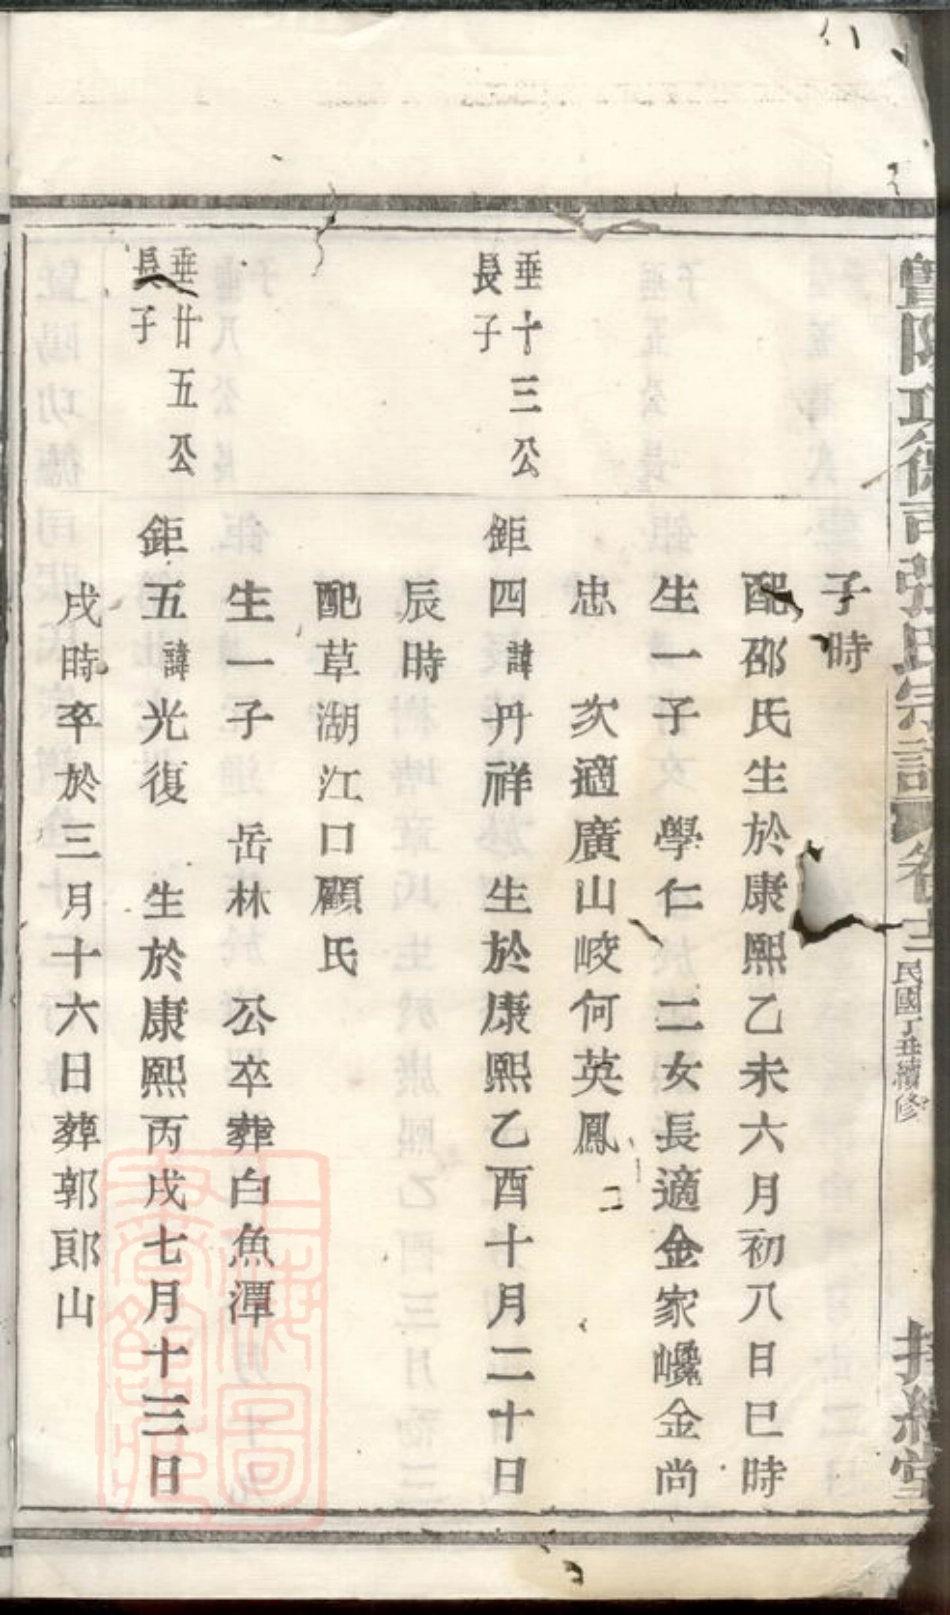 暨陽功德司張氏宗譜 卷十三 民國丁丑續修
子時
配邵氏生於康熙乙未六月初八日巳時
生一子 學仁 二女長適金家㠠金尚
忠 次適廣山崚何英鳳
垂十三公
長子
鉅四諱丹祥生於康熙乙酉十月二十日
辰時
配草湖江口顧氏
生一子 岳林 公卒葬白魚潭
垂廿五公
長子
鉅五諱光復 生於康熙丙戌七月十三日
戌時卒於三月十六日葬郭郎山